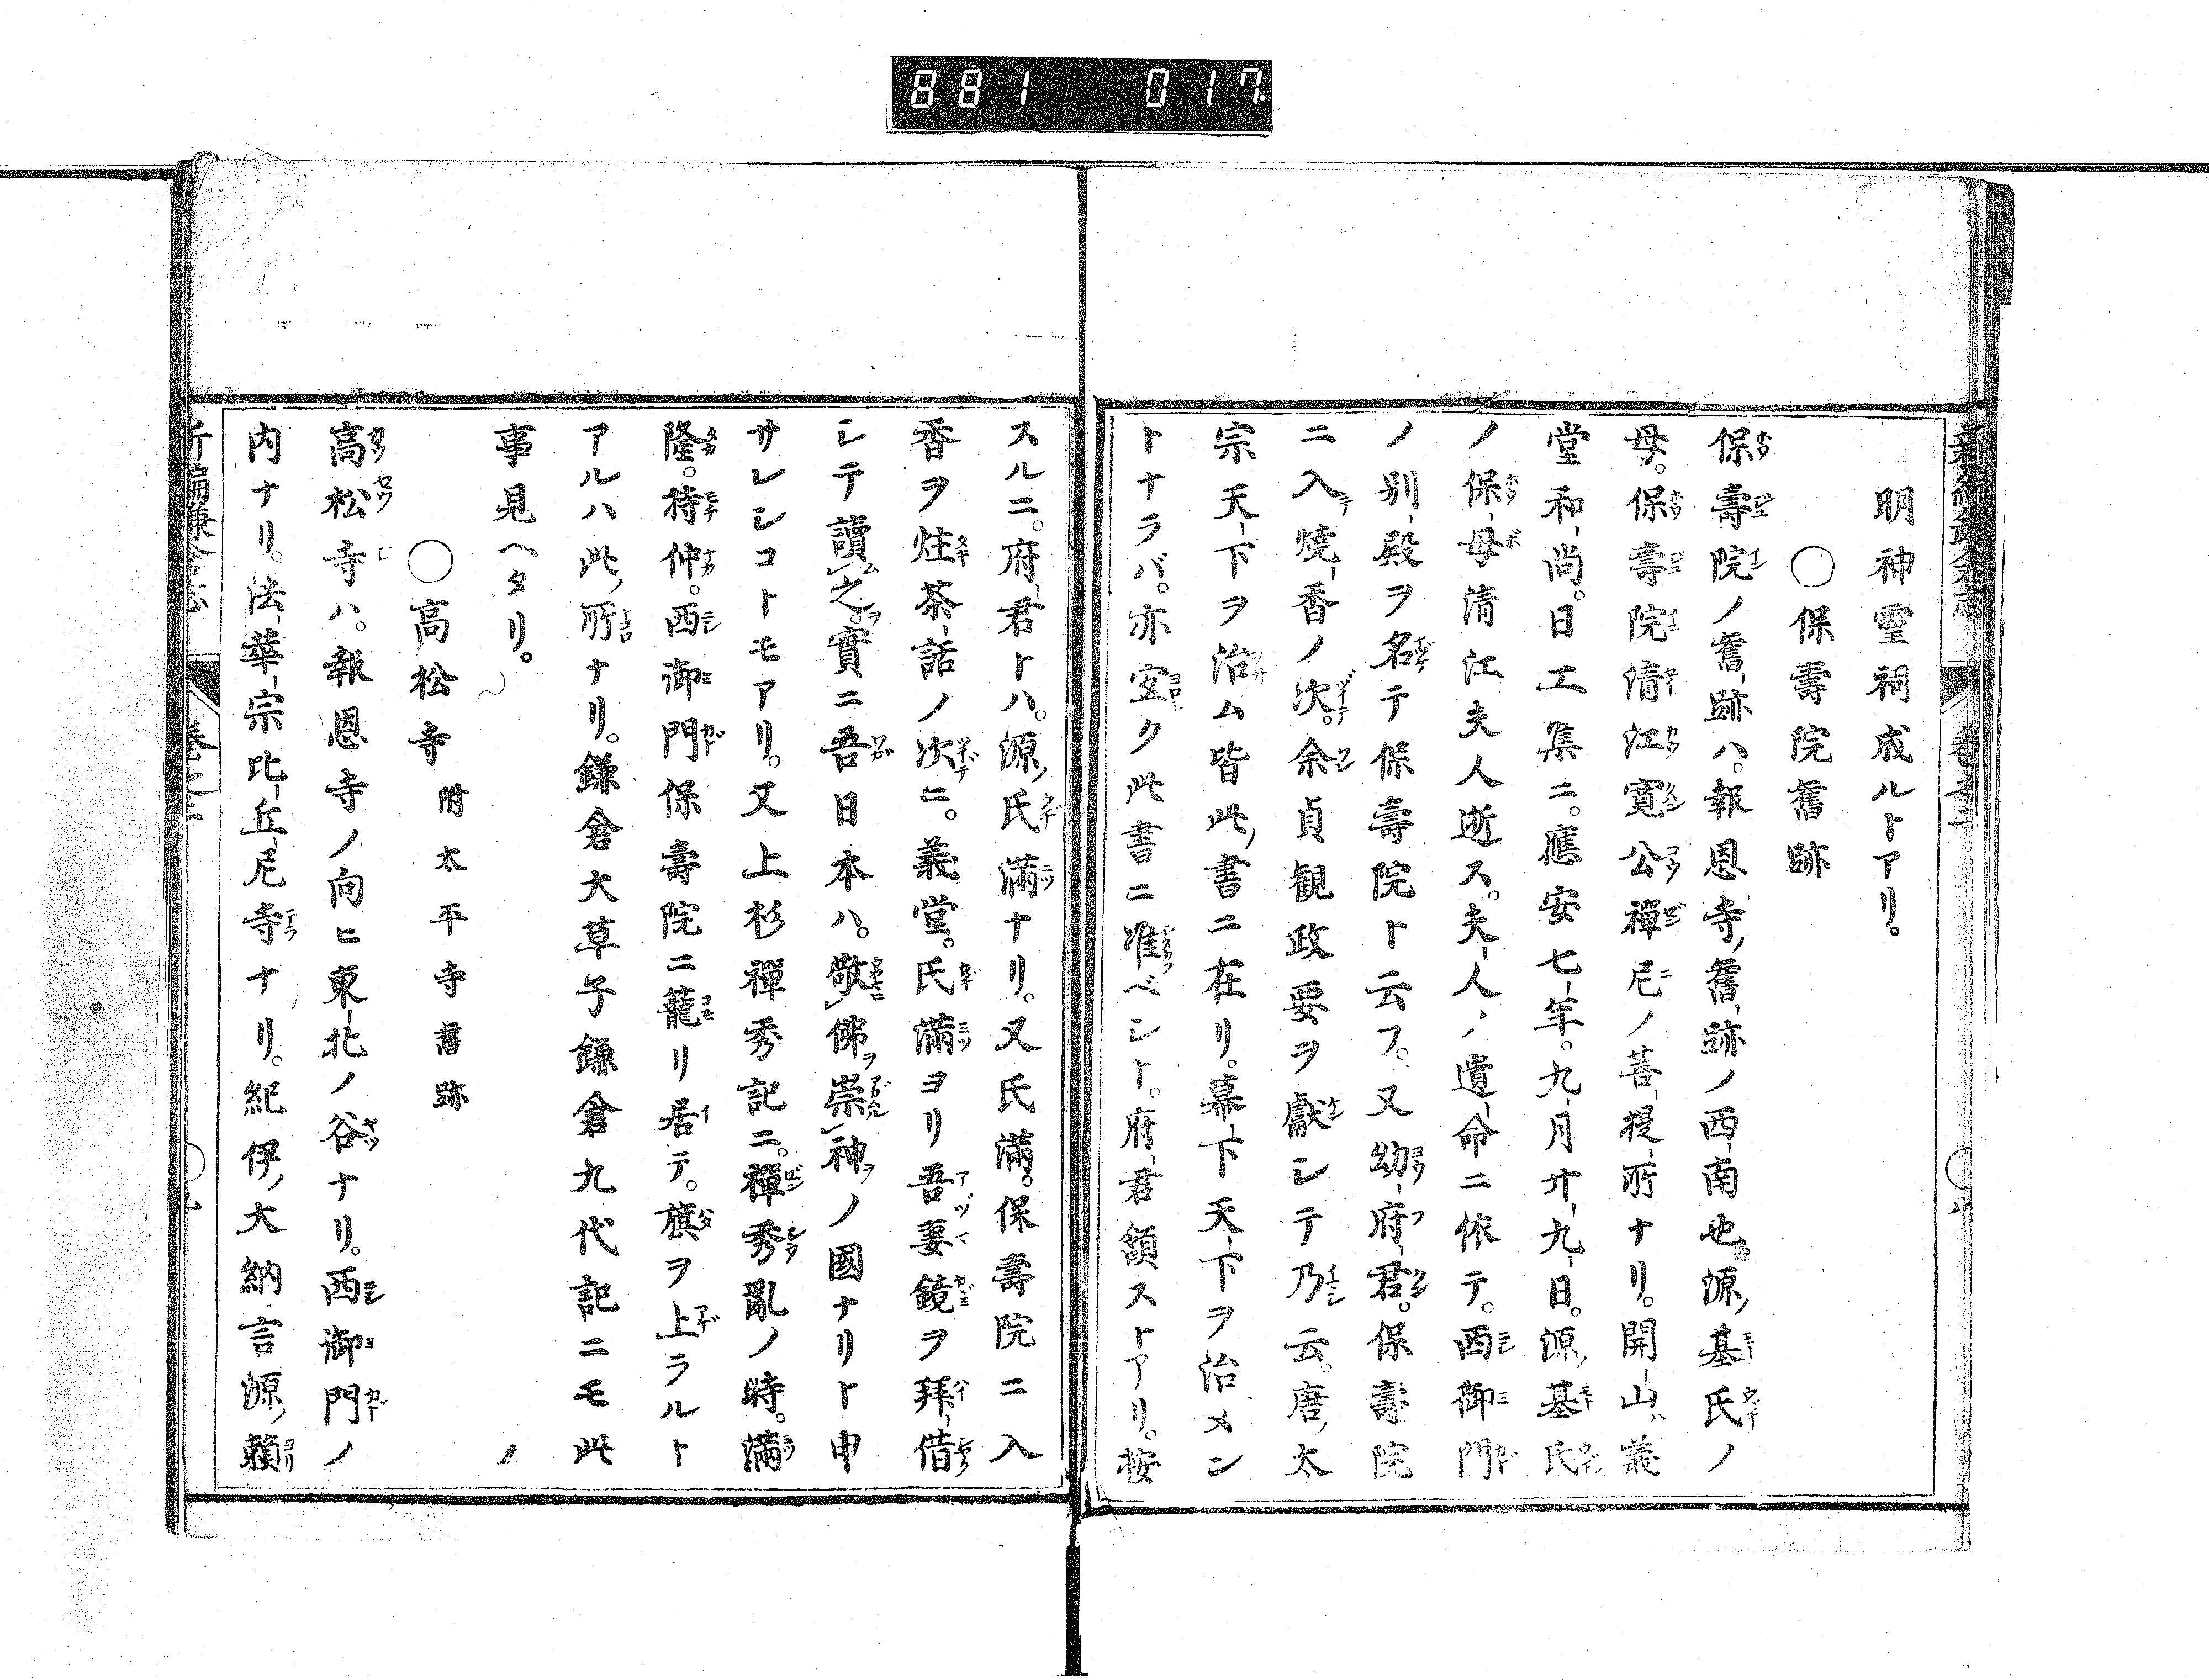 881 017
明神靈祠成ルトアリ。
〇保壽院舊跡
保壽院ノ舊跡ハ。報恩寺ノ舊跡ノ西南也。源ノ基氏ノ
母。保壽院清江寛公禪尼ノ菩提所ナリ。開山ハ義
堂和尚。日工集ニ。應安七年。九月廿九日。源ノ基氏
ノ保母清江夫人逝ス。夫人ノ遺命ニ依テ。西御門
ノ別殿ヲ名テ保壽院ト云フ。又幼府君。保壽院
ニ入テ燒香ノ次。余貞観政要ヲ獻シテ乃云。唐ノ太
宗天下ヲ治ム皆此ノ書ニ在リ。幕下天下ヲ治メン
トナラバ。亦宜ク此書ニ准ベシト。府君頷ストアリ。按
スルニ。府君トハ。源ノ氏滿ナリ。又氏滿。保壽院ニ入
香ヲ炷茶話ノ次ニ。義堂。氏滿ヨリ吾妻鏡ヲ拜借
シテ讀ム之ヲ。實ニ吾日本ハ。敬佛ヲ崇神ヲノ國ナリト申
サレシコトモアリ。又上杉禪秀記ニ。禪秀亂ノ時。滿
隆。持仲。西御門保壽院ニ籠リ居テ。旗ヲ上ラルト
アルハ此ノ所ナリ。鎌倉大草子鎌倉九代記ニモ此
事見ヘタリ。
〇高松寺 附太平寺舊跡
高松寺ハ。報恩寺ノ向ヒ東北ノ谷ナリ。西御門ノ
内ナリ。法華宗比丘尼寺ナリ。紀伊ノ大納言源ノ頼